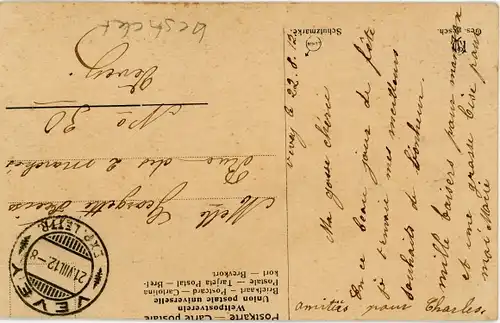 Postkarte — Carte postale
Weltpostverein
Union postale universelle
Briefkaart — Postcard — Cartolina
Postale — Tarjeta Postal — Bref-
kort — Brevkort
Ges. Gesch.
Schutzmarke
VEVEY
EXP. LETTR.
21.VIII.12-8
Melle Georgette
Rue du marché
No 30
Vevey
Vevey le 22.8.12
Ma gosse chérie
En ce beau jour de fête
je t'envoie mes meilleurs
souhaits de bonheur.
mille baisers pour maman
et une grosse bise pour
moi
amitiés pour Charles.